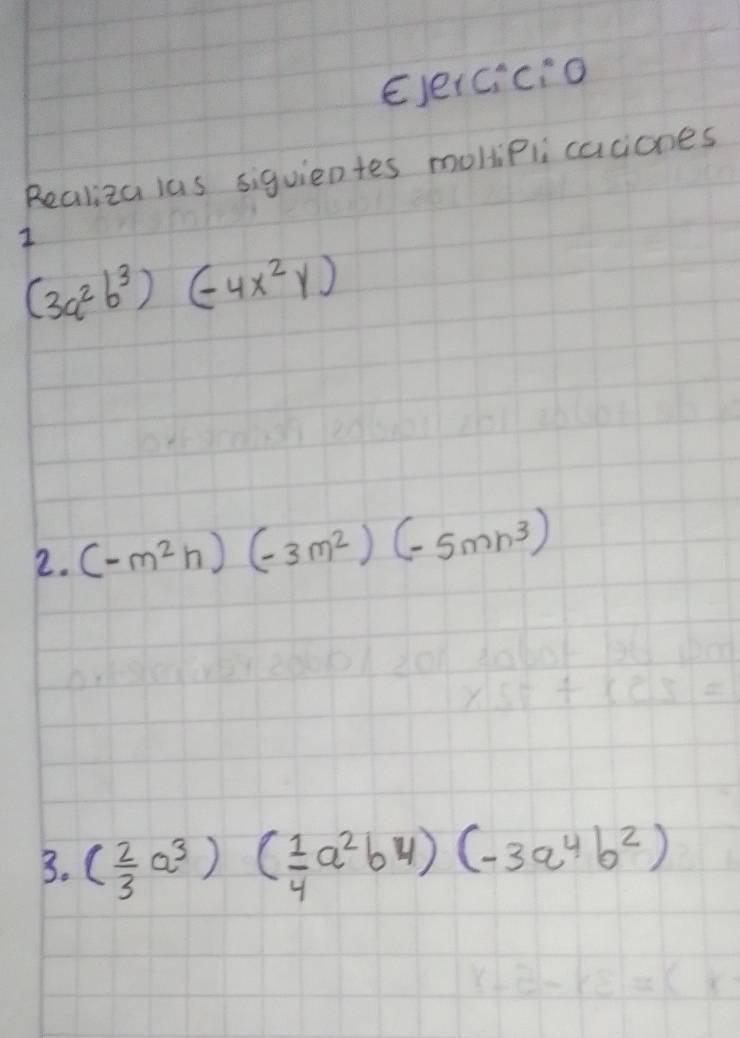 Ejercicio
Realiza las siguientes moltiplicaciones
1
(3a²b³) (-4x²y)
2. (-m²n) (-3m²) (-5mn³)
3. (2/3 a³) (1/4 a²b4) (-3a⁴b²)